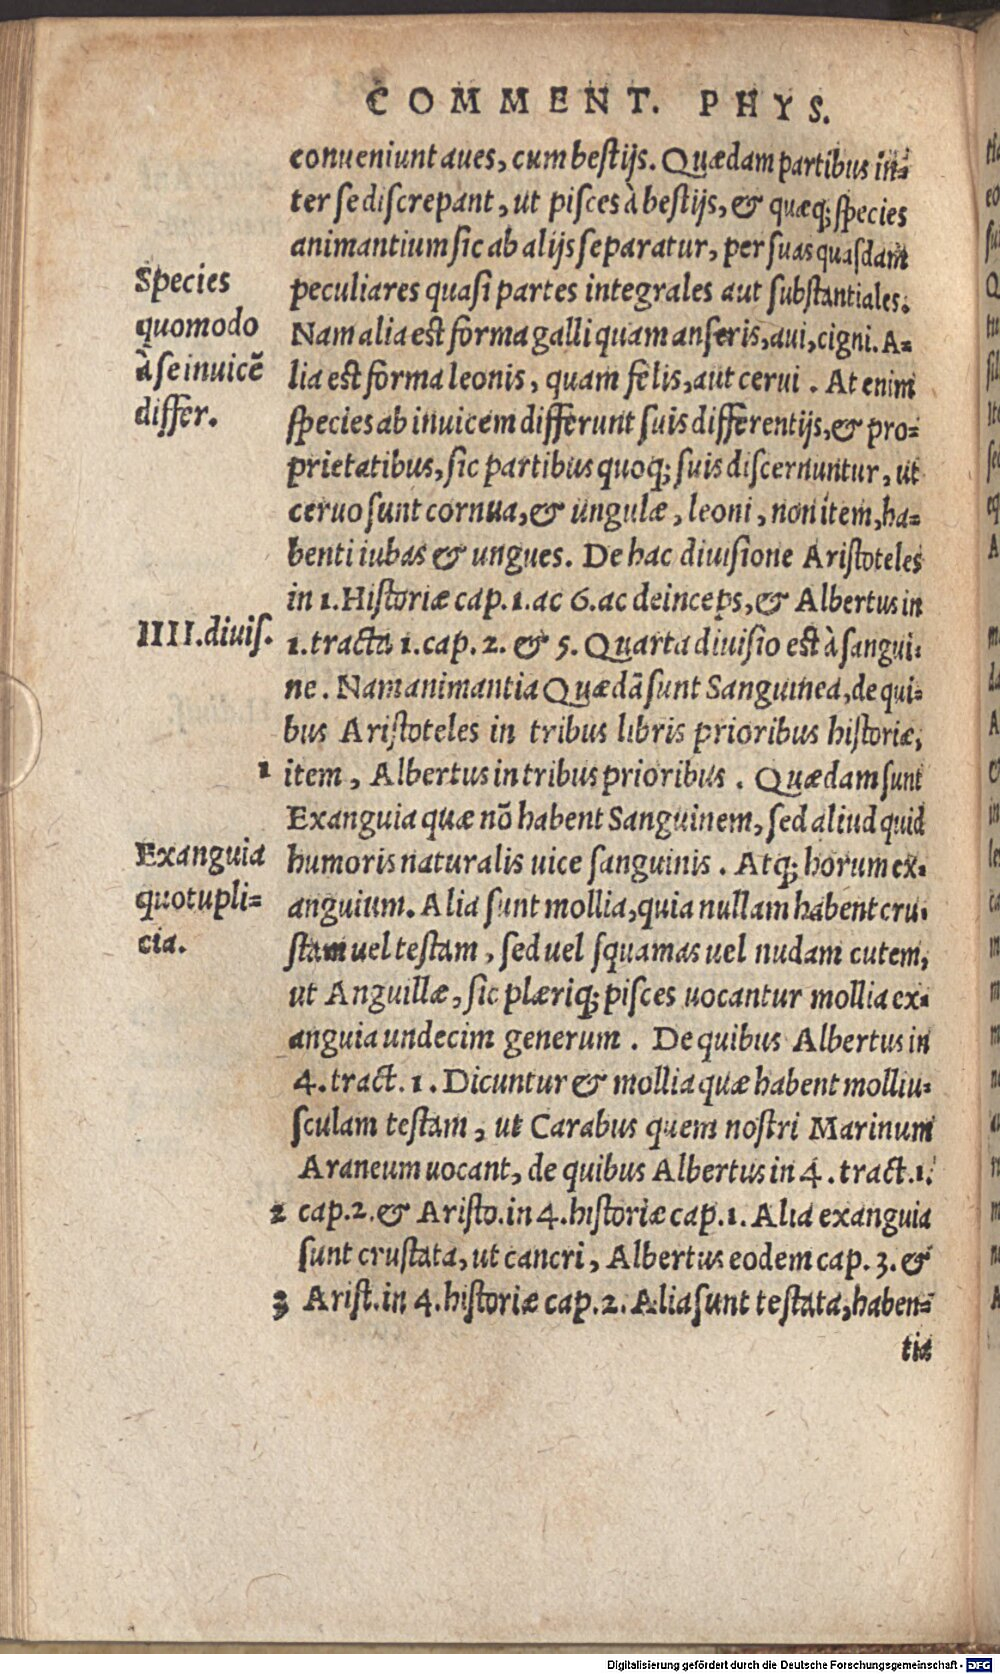 COMMENT. PHYS.
conueniunt aues, cum bestijs. Quædam partibus in=
ter se discrepant, ut pisces à bestijs, & quæq; species
animantium sic ab alijs separatur, per suas quasdam
peculiares quasi partes integrales aut substantiales.
Nam alia est forma galli quam anseris, aui, cigni. A=
lia est forma leonis, quam felis, aut cerui. At enim
species ab inuicem differunt suis differentijs, & pro=
prietatibus, sic partibus quoq; suis discernuntur, ut
ceruo sunt cornua, & ungulæ, leoni, non item, ha=
benti iubas & ungues. De hac diuisione Aristoteles
in 1. Historiæ cap. 1. ac 6. ac deinceps, & Albertus in
1. tracta 1. cap. 2. & 5. Quarta diuisio est à sangui=
ne. Nam animantia Quædã sunt Sanguinea, de qui=
bus Aristoteles in tribus libris prioribus historiæ,
1 item, Albertus in tribus prioribus. Quædam sunt
Exanguia quæ nõ habent Sanguinem, sed aliud quid
humoris naturalis uice sanguinis. Atq; horum ex=
anguium. Alia sunt mollia, quia nullam habent cru=
stam uel testam, sed uel squamas uel nudam cutem,
ut Anguillæ, sic plæriq; pisces uocantur mollia ex=
anguia undecim generum. De quibus Albertus in
4. tract. 1. Dicuntur & mollia quæ habent molliu=
sculam testam, ut Carabus quem nostri Marinum
Araneum uocant, de quibus Albertus in 4. tract. 1.
2 cap. 2. & Aristo. in 4. historiæ cap. 1. Alia exanguia
sunt crustata, ut cancri, Albertus eodem cap. 3. &
3 Arist. in 4. historiæ cap. 2. Alia sunt testata, haben=
tia
Species
quomodo
à se inuicẽ
differ.
IIII. diuis.
Exanguia
quotupli=
cia.
Digitalisierung gefördert durch die Deutsche Forschungsgemeinschaft - DFG